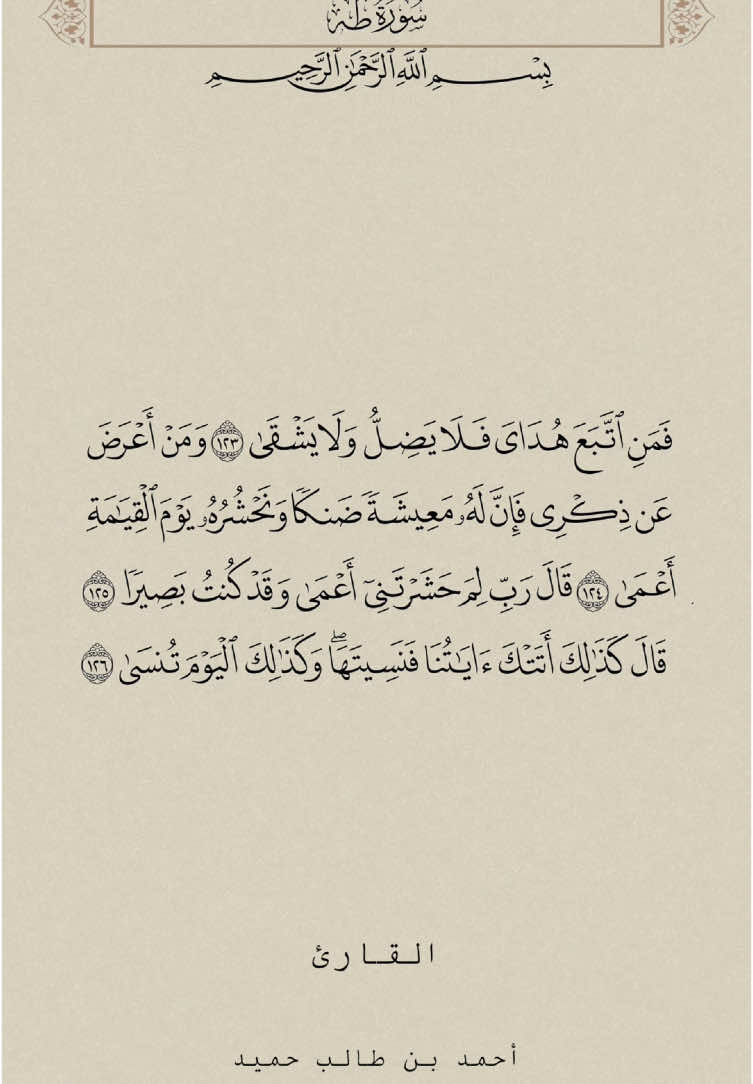 سُورَةُ طه
بِسْمِ ٱللَّهِ ٱلرَّحْمَٰنِ ٱلرَّحِيمِ
فَمَنِ ٱتَّبَعَ هُدَاىَ فَلَا يَضِلُّ وَلَا يَشْقَىٰ ١٢٣ وَمَنْ أَعْرَضَ
عَن ذِكْرِى فَإِنَّ لَهُۥ مَعِيشَةً ضَنكًا وَنَحْشُرُهُۥ يَوْمَ ٱلْقِيَٰمَةِ
أَعْمَىٰ ١٢٤ قَالَ رَبِّ لِمَ حَشَرْتَنِىٓ أَعْمَىٰ وَقَدْ كُنتُ بَصِيرًا ١٢٥
قَالَ كَذَٰلِكَ أَتَتْكَ ءَايَٰتُنَا فَنَسِيتَهَا ۖ وَكَذَٰلِكَ ٱلْيَوْمَ تُنسَىٰ ١٢٦
القارئ
أحمد بن طالب حميد